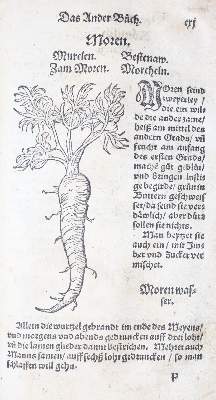 Das Ander Bůch.
cxj
Moren.
Murelen. Bestenaw.
Zam Moren. Morcheln.
Moren seind
zweyerley /
die ein wild
die ander zame /
heiß am mittel des
andern Grads / vñ
feucht am anfang
des ersten Grads /
machẽ gůt geblüt /
und bringen lustig
begirde / grün in
Buttern geschweis
set / da seind sie vers
däwlich / aber dürr
sollen sie nichts.
Man beytzet sie
auch ein / mit Jns
ber und Zucker ver
mischet.
Moren was
ser.
Allein die wurtzel gebrandt im ende des Meyens /
und morgens und abends getruncken auff drei loht /
vñ die lamen glieder damit bestrichen. Mehret auch
Manns samen / auff sechß loht getruncken / so man
schlaffen will gehn.
P